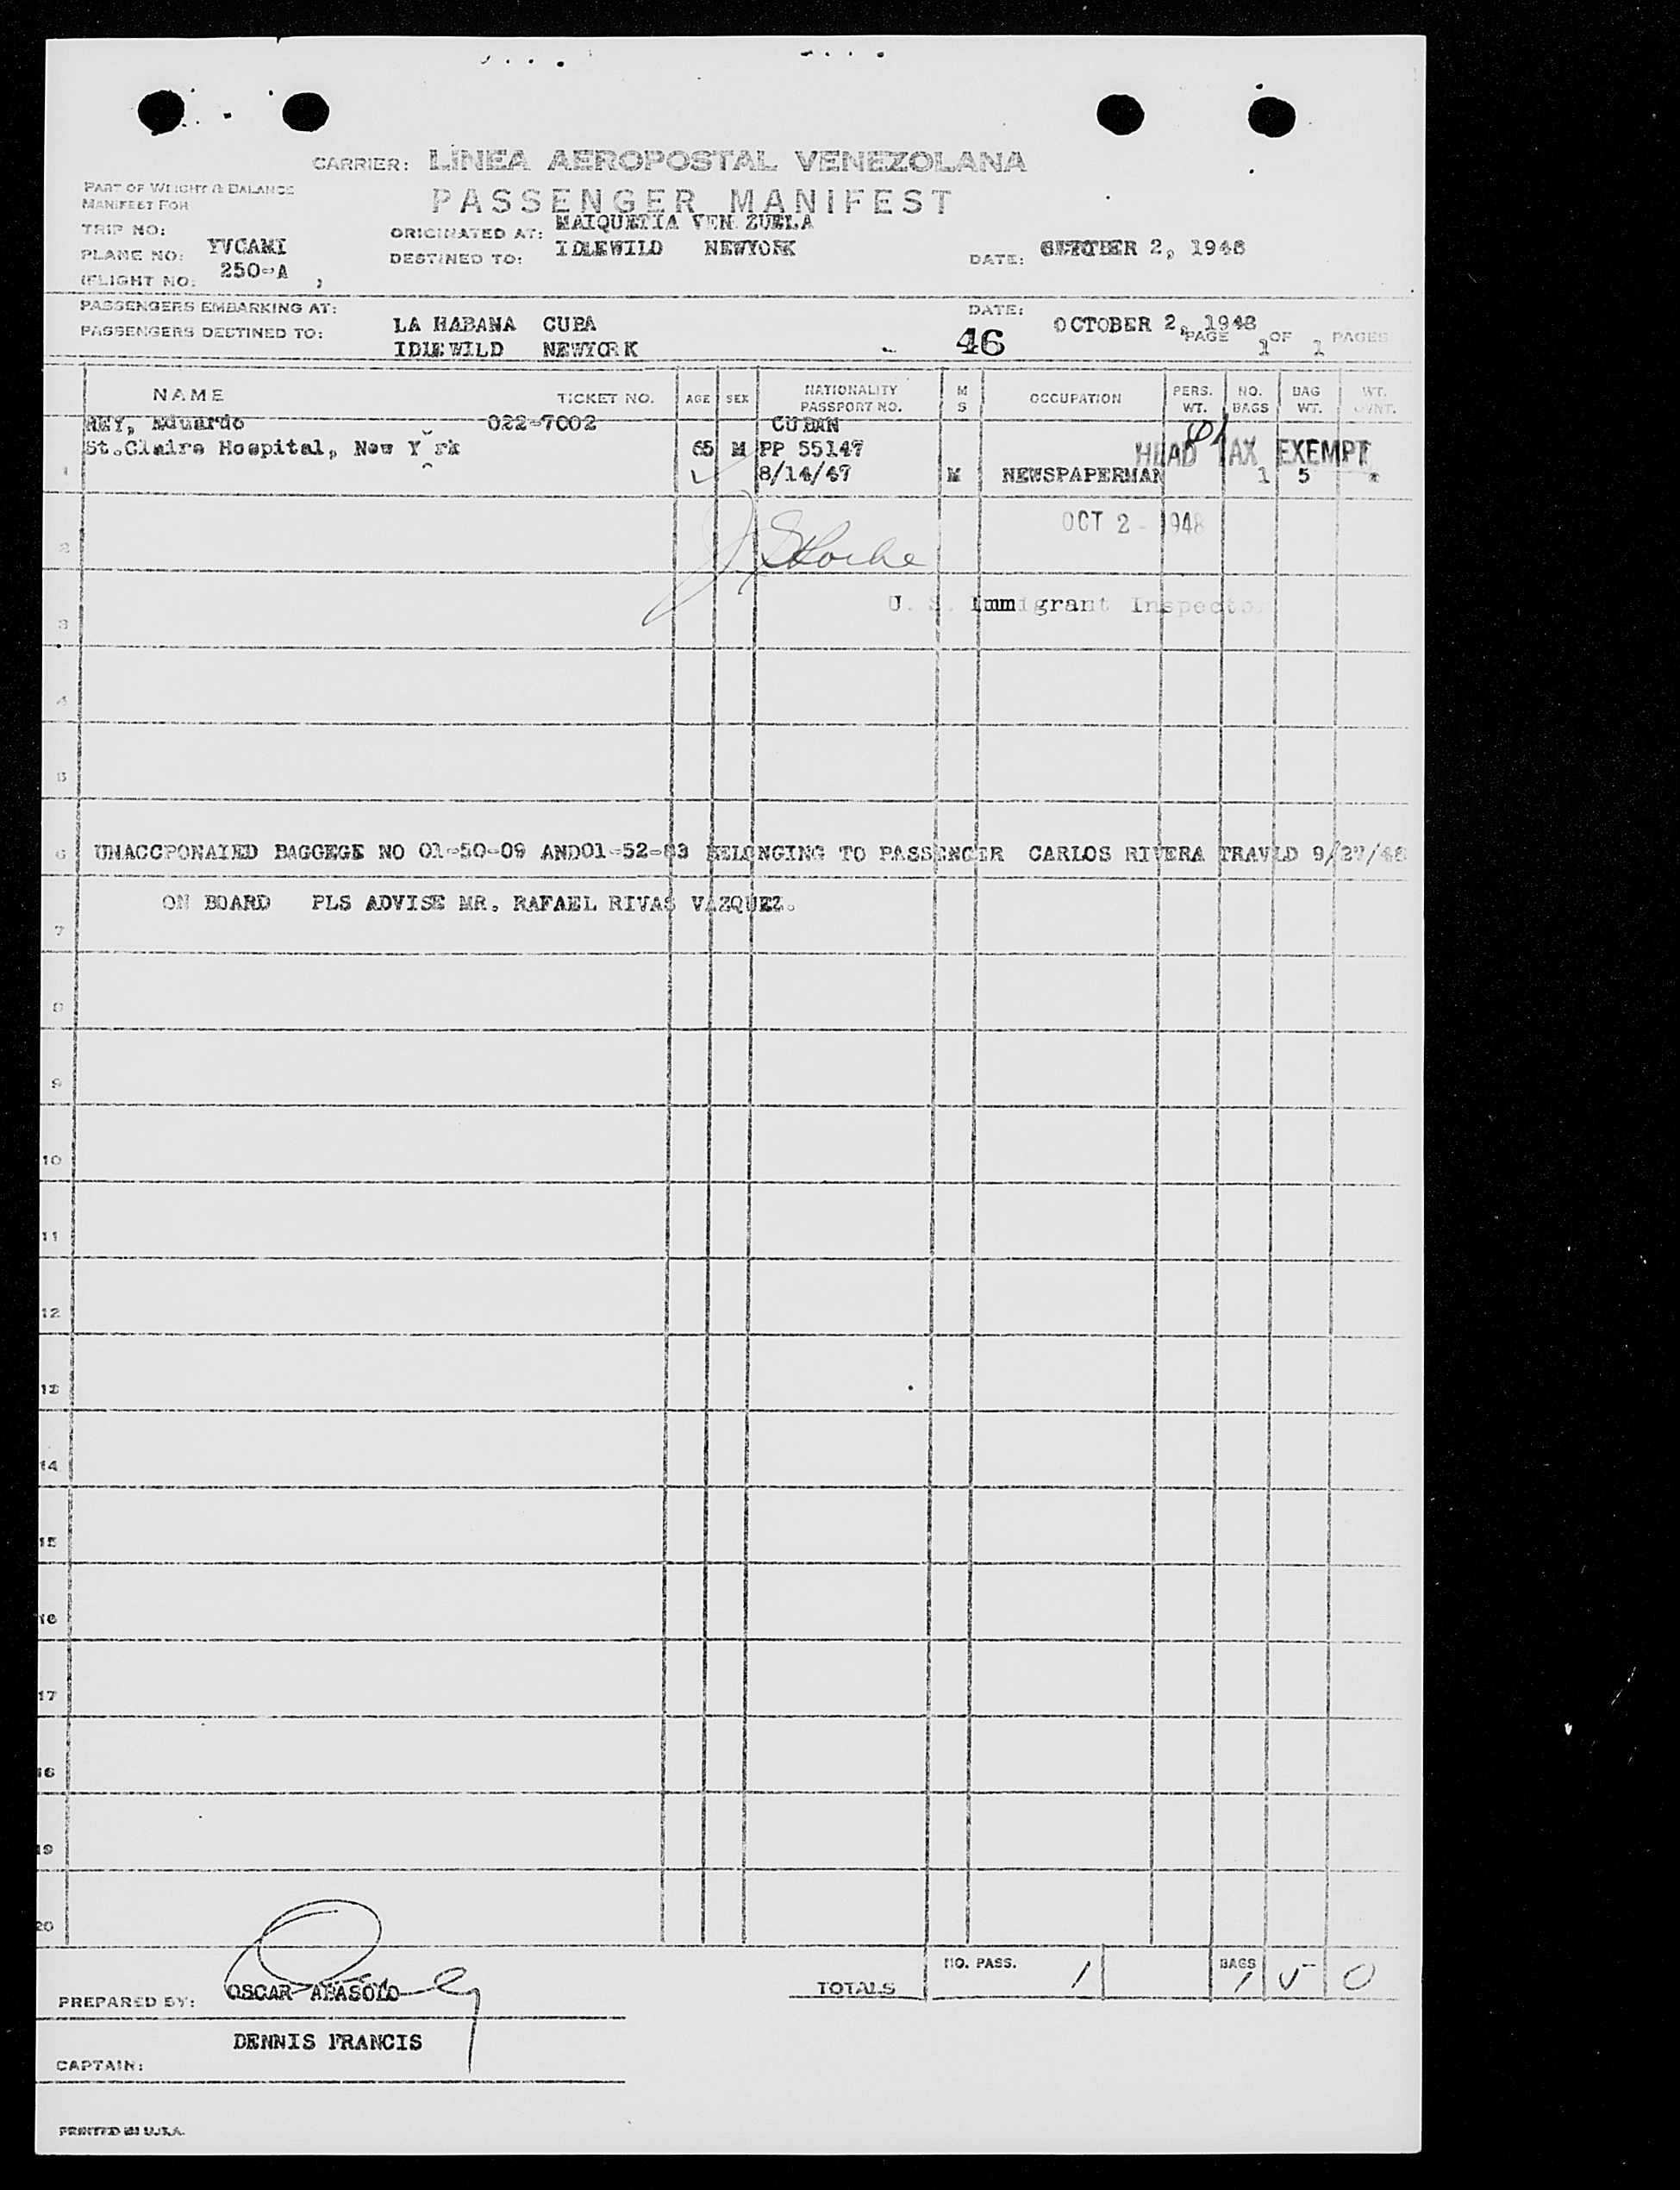 CARRIER: LINEA AEROPOSTAL VENEZOLANA
PART OF WEIGHT & BALANCE
MANIFEST FOR
PASSENGER MANIFEST
TRIP NO:
ORIGINATED AT: MAIQUETIA VEN ZUELA
PLANE NO: YVCAMI
DESTINED TO: IDLEWILD NEWYORK
DATE: 2, 1948
(FLIGHT NO: 250-A )
PASSENGERS EMBARKING AT: LA HABANA CUBA
DATE: OCTOBER 2, 1948
PASSENGERS DESTINED TO: IDLEWILD NEWYORK
46
PAGE 1 OF 1 PAGES
NAME TICKET NO. AGE SEX NATIONALITY PASSPORT NO. M S OCCUPATION PERS. WT. NO. BAGS BAG WT. WT.
REY, Eduardo 022-7002 CUBAN
St.Claire Hospital, New Y rk 65 M PP 55147 HEAD TAX EXEMPT
1 8/14/47 M NEWSPAPERMAN 1 5 *
OCT 2 - 1948
2
U. S. Immigrant Inspector
3
4
5
6 UNACCPONAIED BAGGEGE NO 01-50-09 AND01-52-63 BELONGING TO PASSENGER CARLOS RIVERA TRAVLD 9/27/48
ON BOARD PLS ADVISE MR. RAFAEL RIVAS VAZQUEZ.
7
8
9
10
11
12
13
14
15
16
17
18
19
20
TOTALS NO. PASS. 1 BAGS 1 5 0
PREPARED BY: OSCAR ABASOLO
DENNIS FRANCIS
CAPTAIN:
PRINTED IN U.S.A.